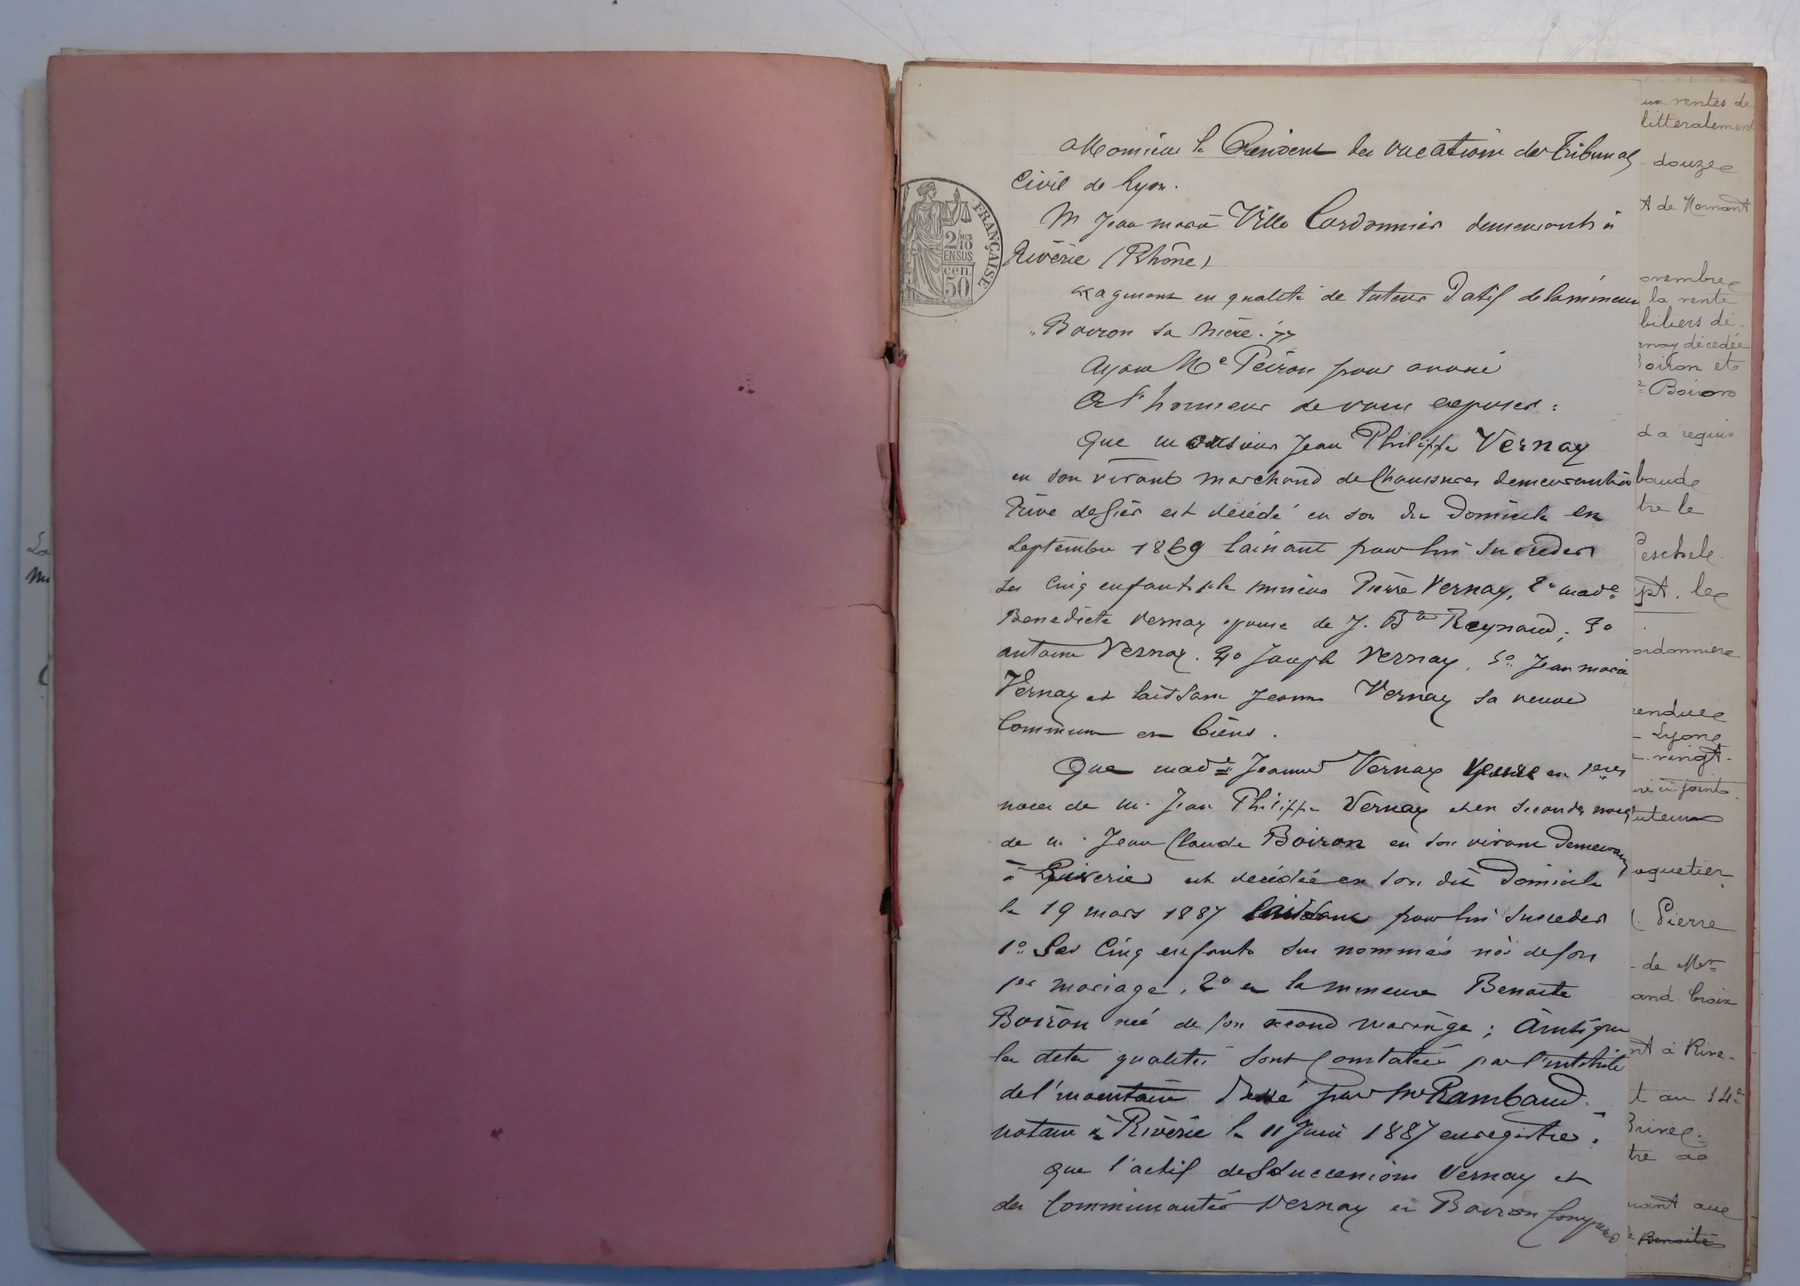 Monsieur le President des vacations du Tribunal
Civil de Lyon.
M Jean marie Ville Cordonnier demeurant à
Riverie (Rhône)
agissant en qualité de tuteur Datif de la mineure
Boiron sa nièce.
Ayant Me Peiron pour avoué
A l'honneur de vous exposer :
Que monsieur Jean Philippe Vernay
en son vivant marchand de Chaussures demeurant à
Rive de Gier est décédé en son dit Domicile en
Septembre 1869 laissant pour lui succeder
Ses Cinq enfants Pierre Vernay, 2° made
Benedicte Vernay epouse de J. Bte Reynaud ; 3°
antoine Vernay. 4° Joseph Vernay. 5° Jean marie
Vernay et laissant Jeanne Vernay sa veuve
Commune en biens.
Que made Jeanne Vernay veuve en 1eres
noces de m. Jean Philippe Vernay et en secondes noces
de m. Jean Claude Boiron en son vivant demeurant
à Riverie est décédée en son dit Domicile
le 19 mars 1887 laissant pour lui succeder
1° Ses Cinq enfants sus nommés nés de son
1er mariage, 2° et la mineure Benoite
Boiron née de son second mariage ; Ainsi que
les dites qualités sont Constatées par l'intitulé
de l'inventaire Dressé par Me Rambaud.
notaire à Riverie le 11 Juin 1887 enregistré.
Que l'actif des Successions Vernay et
des Communautés Vernay et Boiron
FRANÇAISE
2/10
EN SUS
50
cen
ux ventes de
litteralement
douze
t de Mornant
ovembre
la vente
biliers dé-
rnay décédée
Boiron et
Boiron
d a requis
baude
tre le
Peschele
pt. le
ordonnière
endue
Lyon
vingt-
ci-joint
tuteur
oquetier
Pierre
de Mr
and Croix
nt à Rive-
t au 14e
Rive
tre
nant que
Benoite